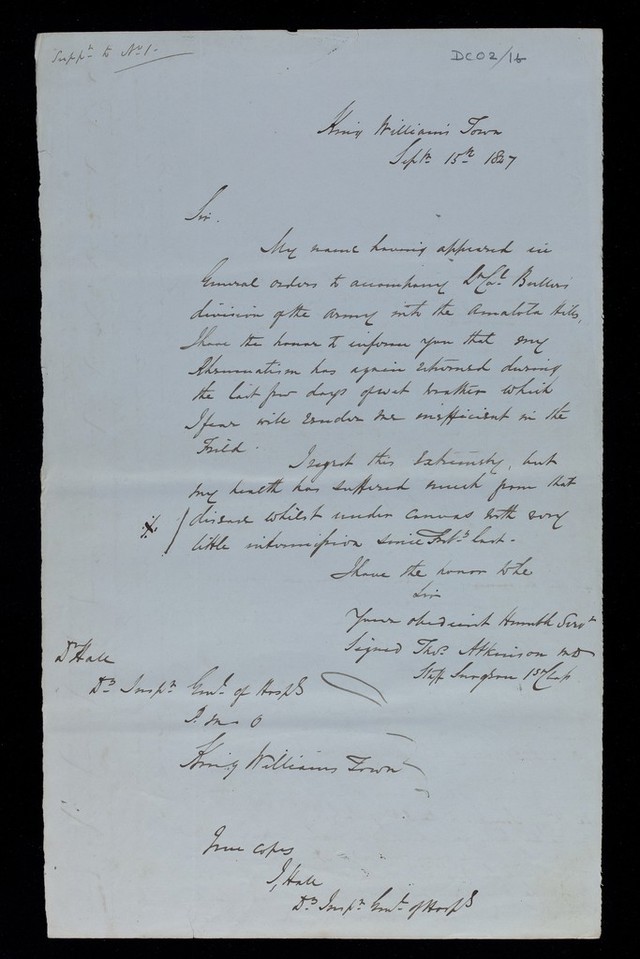 Suppt to No 1.
DC02/16
King William's Town
Septr 15th 1847
Sir.
My name having appeared in
General orders to accompany Lt Col. Buller's
division of the army into the Amatola Hills,
I have the honor to inform you that my
Rheumatism has again returned during
the last few days of wet weather which
I fear will render me inefficient in the
Field.
I regret this extremely, but
my health has suffered much from that
disease whilst under canvas with very
little intermission since Feby last.
I have the honor to be
Sir
Your obedient Humble Servt
Signed Thos. Atkinson MD
Staff Surgeon 1st Class
Dr Hall
Dy Inspr Genl of Hospls
P M O
King Williams Town
True copy
J, Hall
Dy Inspr Genl of Hospls